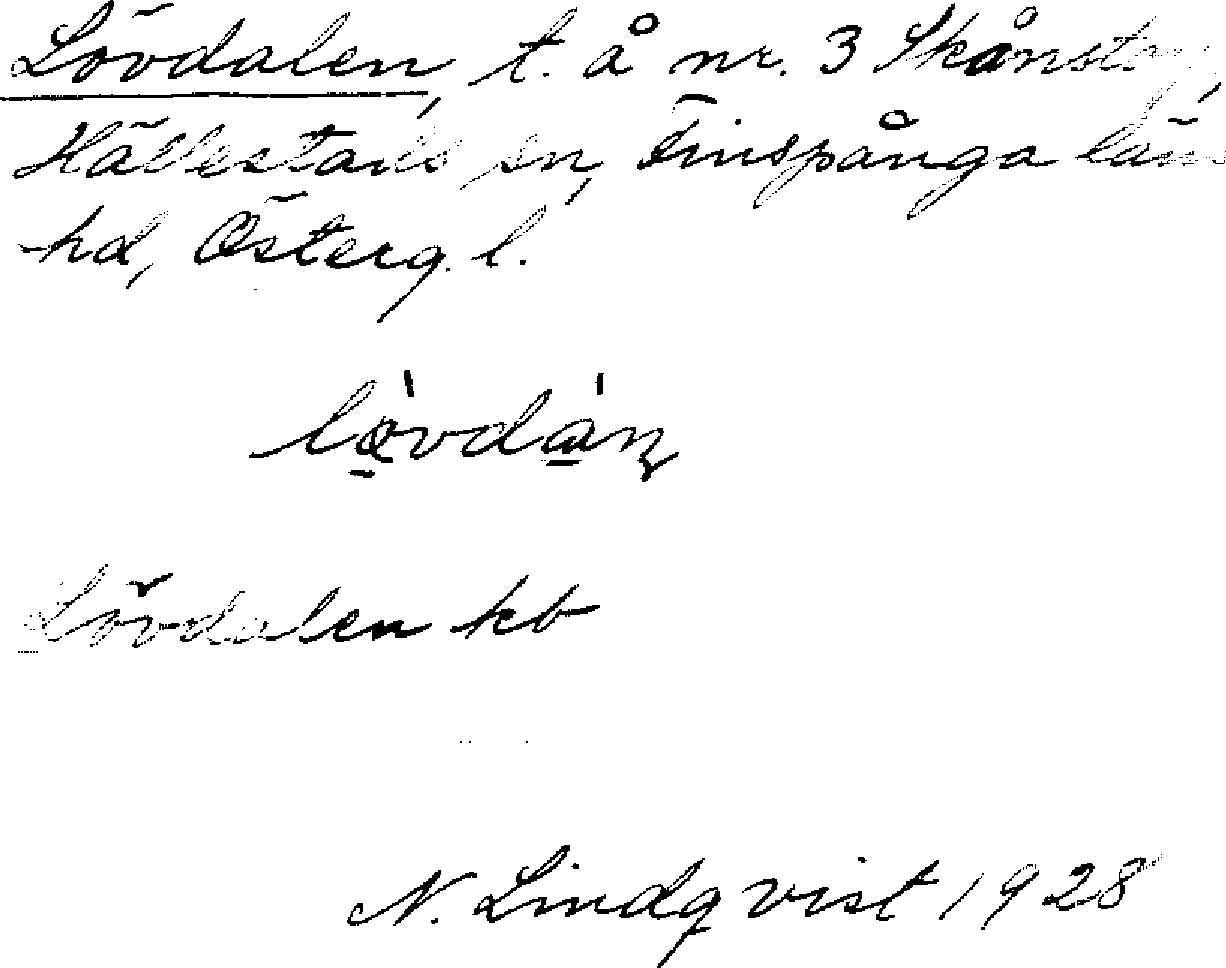 Lövdalen, t. å nr. 3
Hällestads sn, Finspånga läns
hd, Österg. l.
Lövdalen kb
N. Lindqvist 1928